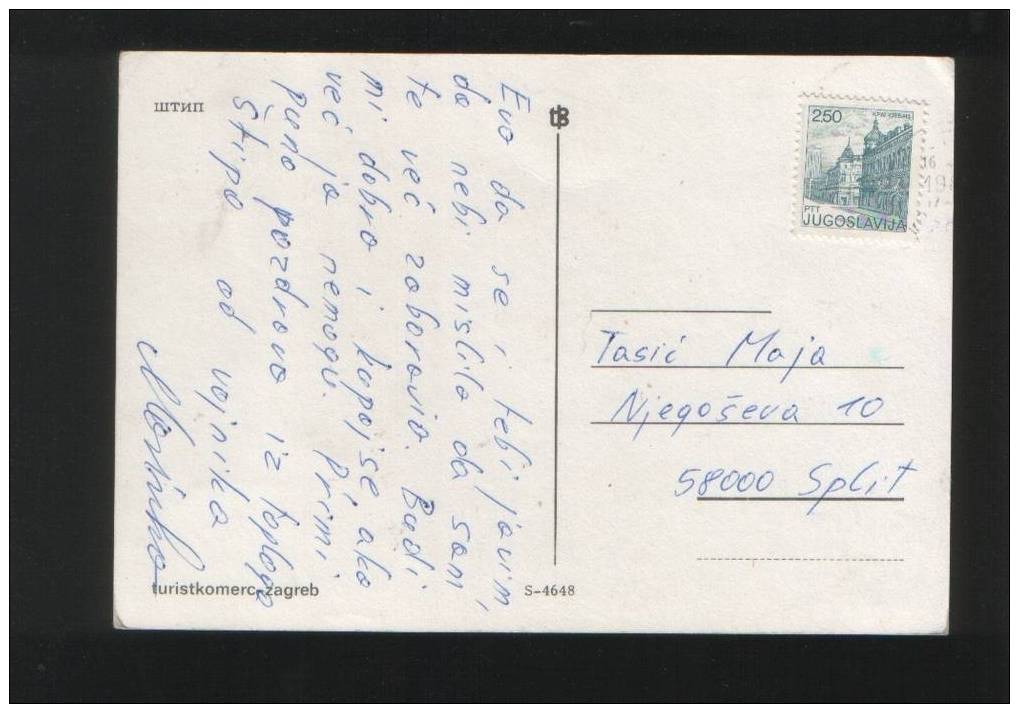 штип
Evo da se i tebi javim,
da nebi mislila da sam
te već zaboravio. Budi
mi dobra i kupaj se ako
već ja nemogu. Primi
puno pozdrava iz toplog
Štipa od vojnika
turistkomerc-zagreb
S-4648
2.50
PTT
JUGOSLAVIJA
16
Tasić Maja
Njegoševa 10
58000 Split